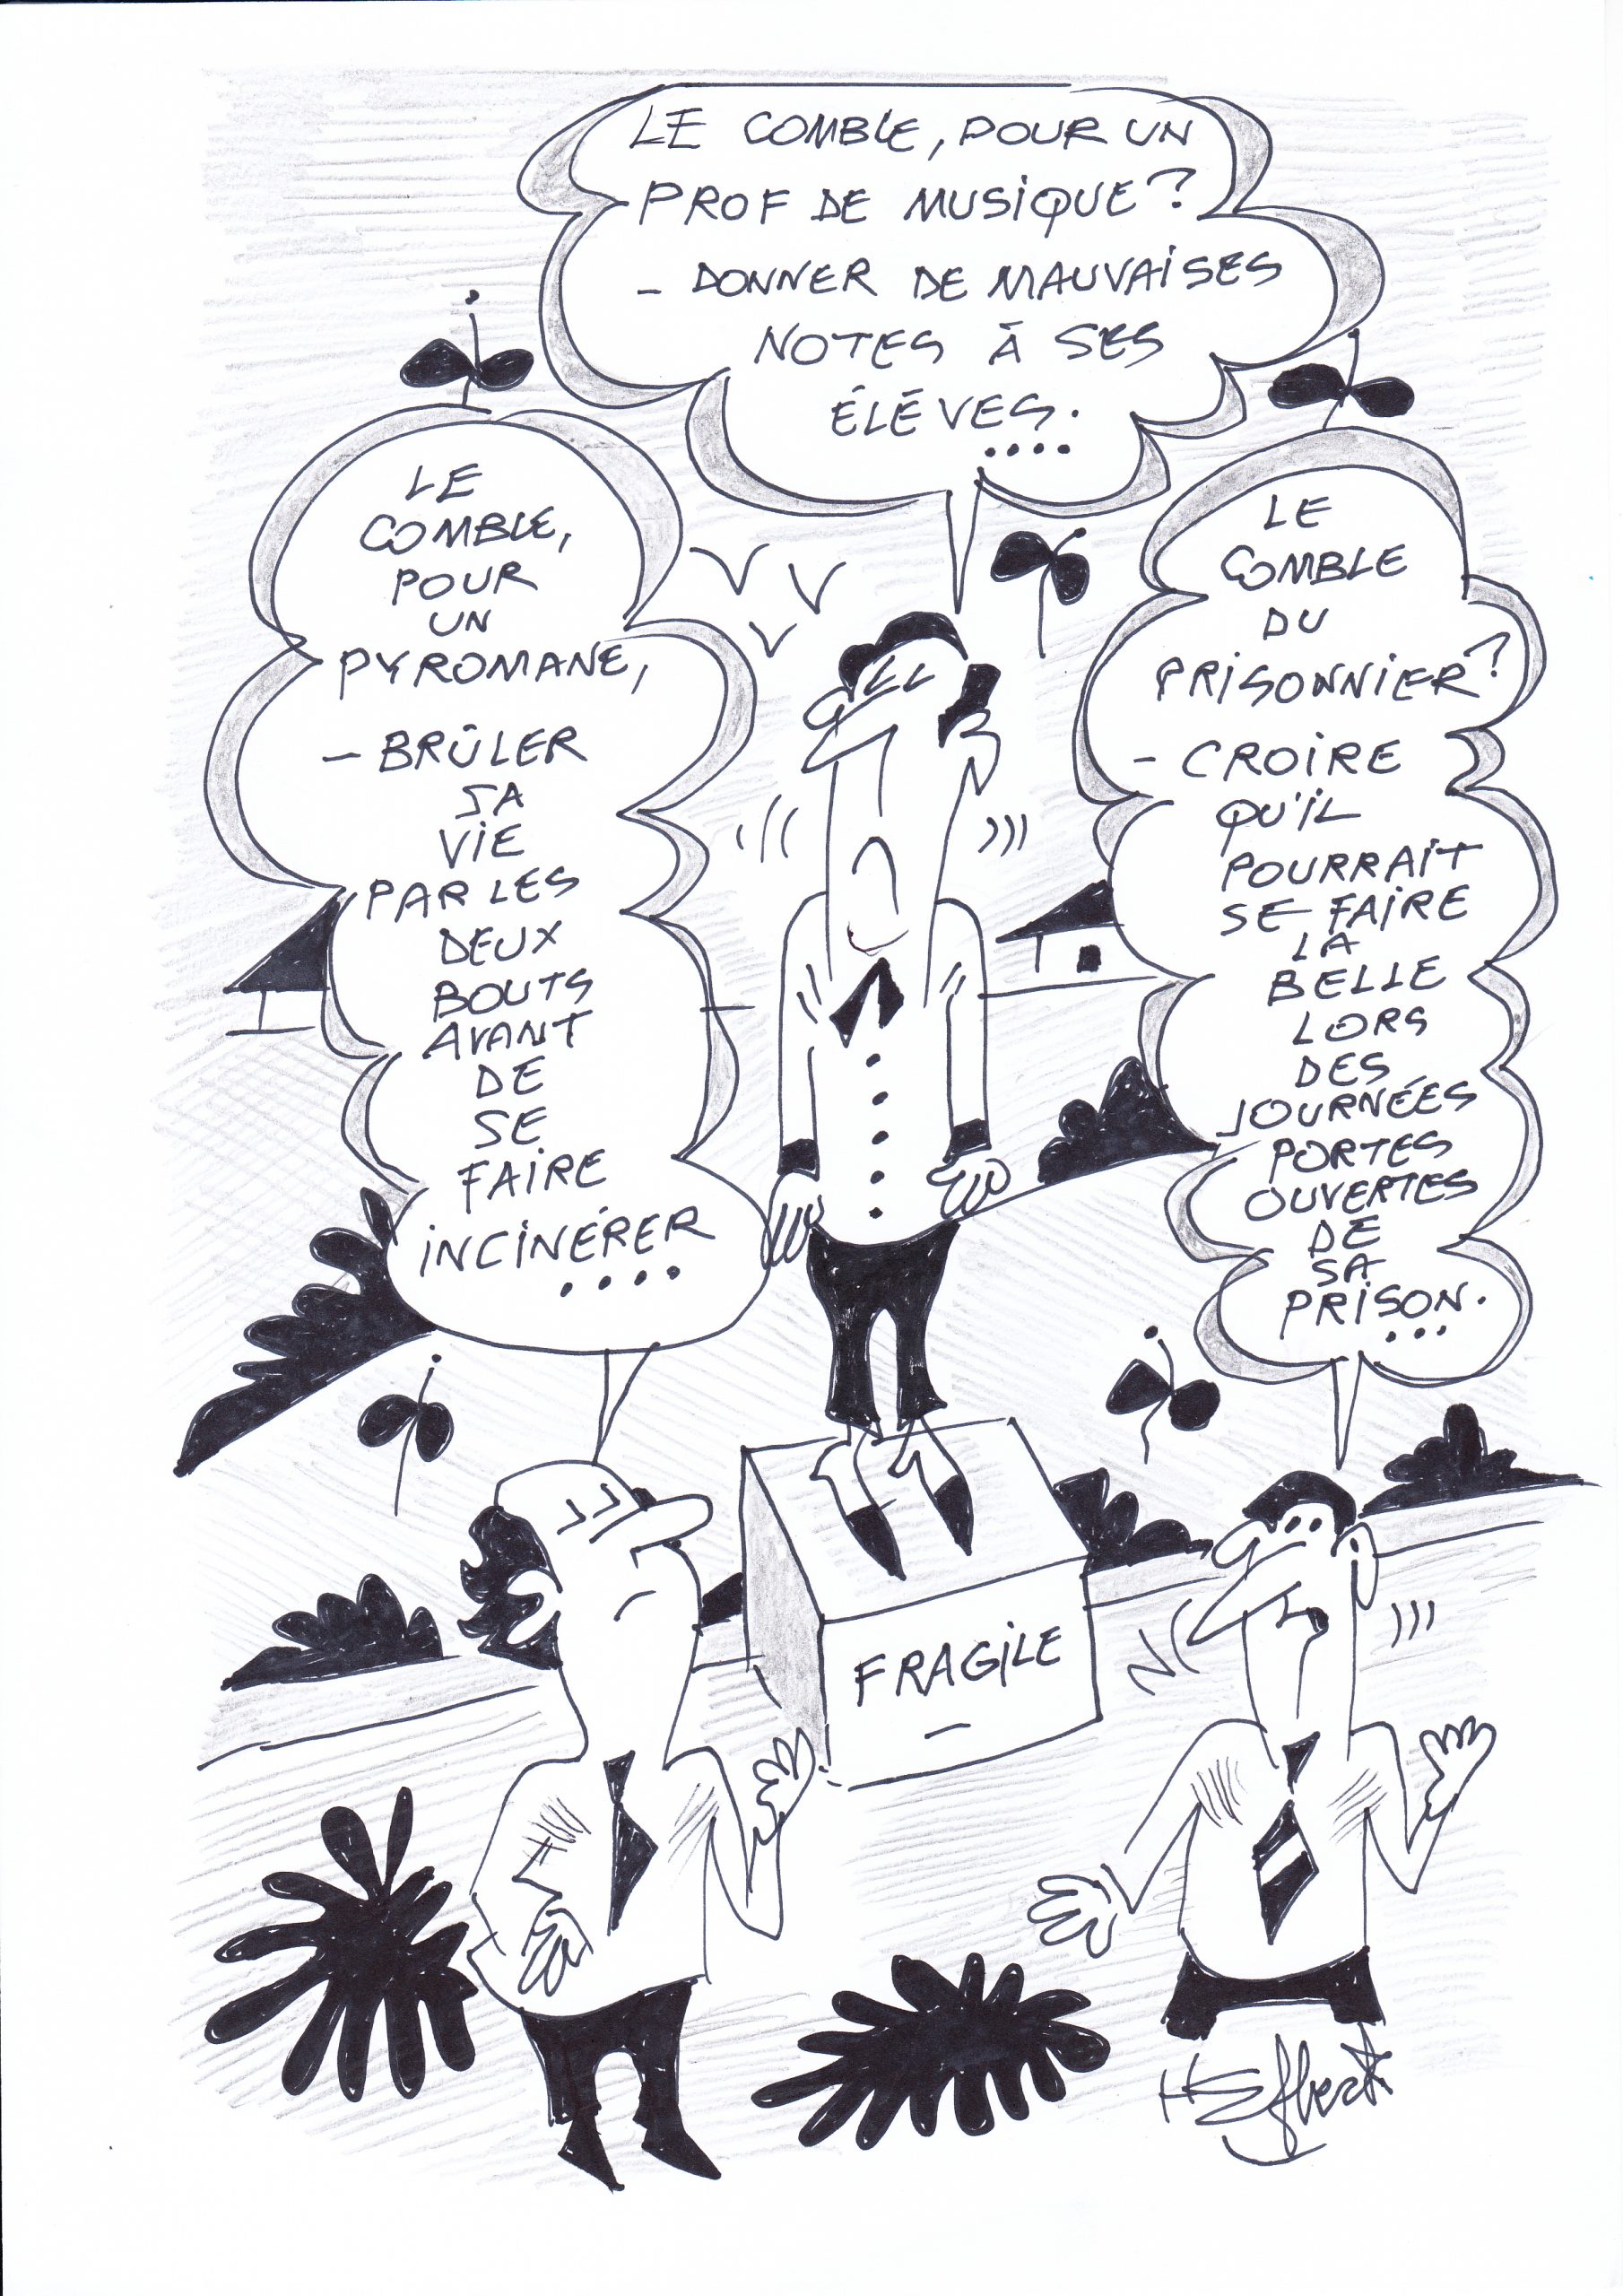 LE COMBLE, POUR UN
PROF DE MUSIQUE?
- DONNER DE MAUVAISES
NOTES À SES
ÉLÉVES.
....
LE
COMBLE,
POUR
UN
PYROMANE,
- BRÛLER
SA
VIE
PAR LES
DEUX
BOUTS
AVANT
DE
SE
FAIRE
INCINÉRER
....
LE
COMBLE
DU
PRISONNIER?
- CROIRE
QU'IL
POURRAIT
SE FAIRE
LA
BELLE
LORS
DES
JOURNÉES
PORTES
OUVERTES
DE
SA
PRISON.
...
FRAGILE